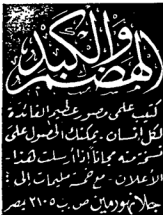 الهضم والكبد
كتيب علمي مصور عظيم الفائدة
لكل إنسان - يمكنك الحصول على
نسخة منه مجاناً إذا أرسلت هذا
الأعلان - مع خمسة مليمات إلى :
جلانهورمين ص. ب ٢١٠٥ مصر